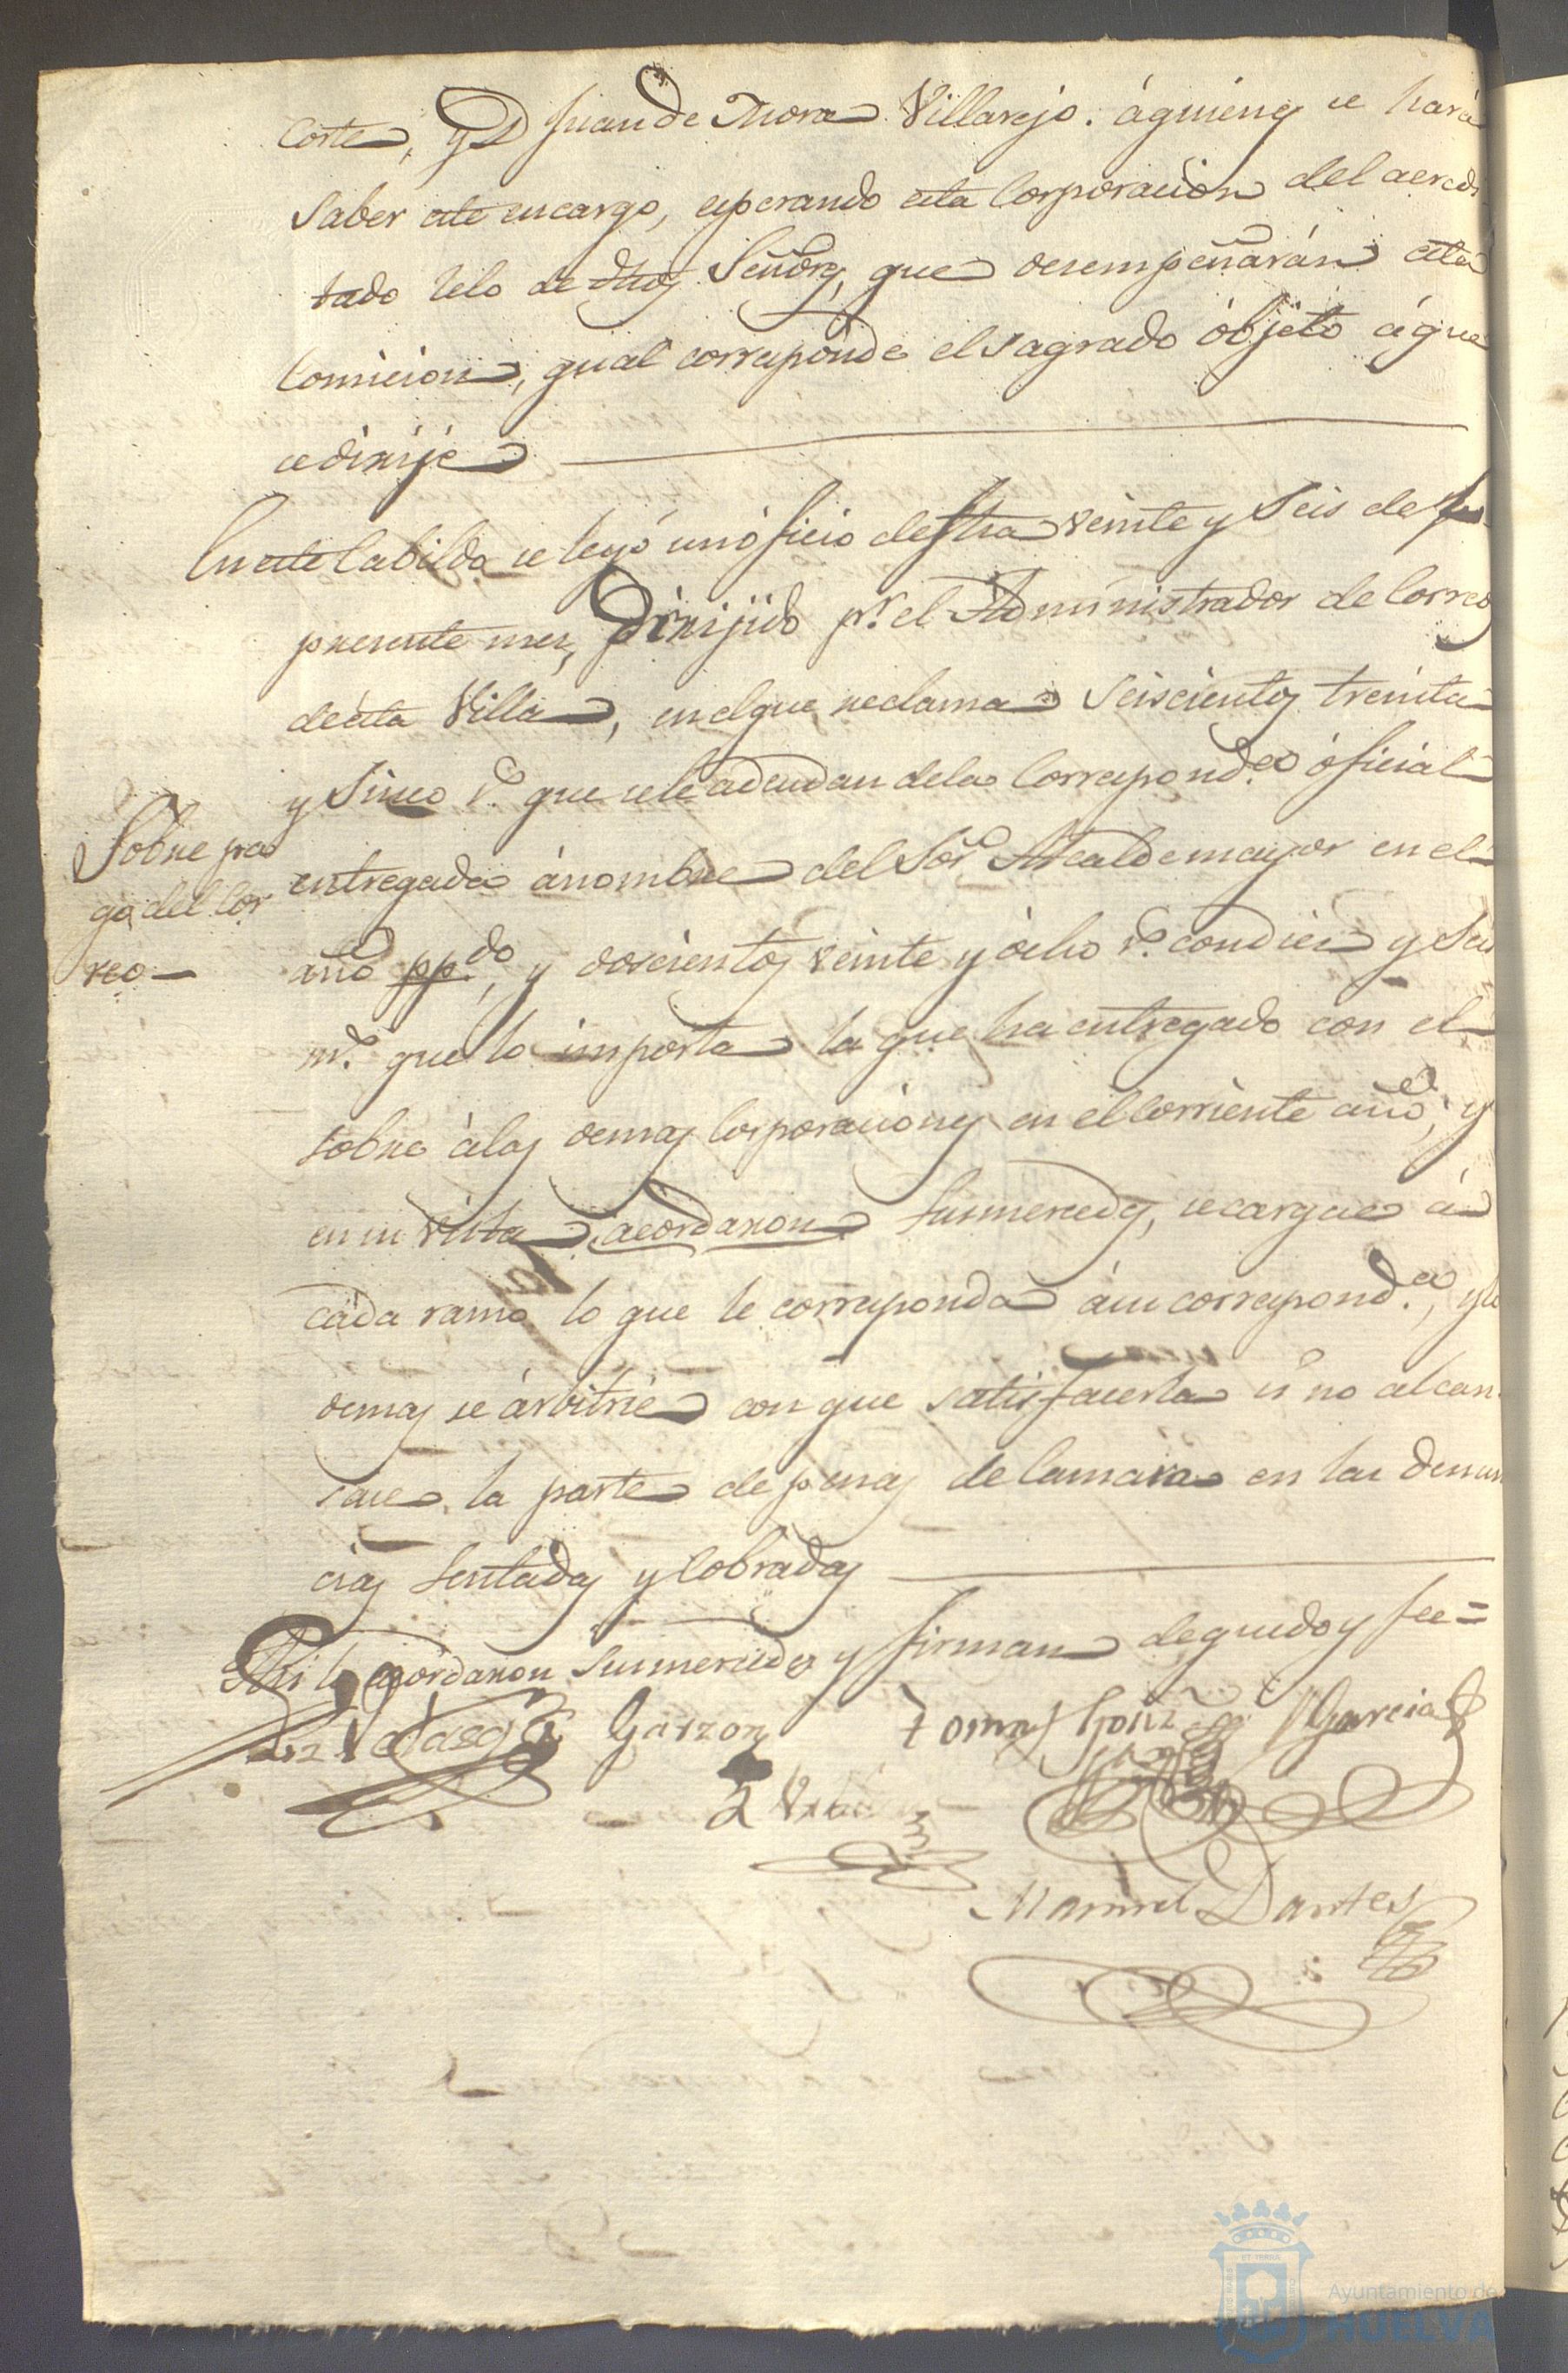 Corte, y D Juan de Mora Villarejo. á quienes se hará
saber este encargo, esperando esta Corporacion del acredi
tado zelo de dhos Señores, que desempeñarán esta
Comicion, qual corresponde el sagrado óbjeto á que
se dirije
En este Cabildo se leyó un óficio de fha veinte y Seis de
presente mes, Dirijido pr. el Administrador de Correos
de ésta Villa, en el que reclama Seiscientos treinta
y Sinco rs. que se le adeudan de la Correspond.a óficial
Sobre pa
go del Cor
reo
entregada á nombre del Sor. Alcalde mayor en el
año pp.do, y doscientos veinte y ócho rs. con diez y Seis
ms. que lo importa la que ha entregado con el
sobre á las demas Corporaciones en el corriente año, y
en su vista acordaron Susmercedes, se cargue á
cada ramo lo que le corresponda á su correspond.a, y lo
demas se árbitrie con que satisfacerla si no alcan
sare la parte de penas de Camara en las denun
cias Sentadas y Cobradas
Asi lo acordaron Susmercedes y firman de que doy fee=
Velasco Garzon Tomas Gonz Garcia
Manuel Dantes
Ayuntamiento de
HUELVA